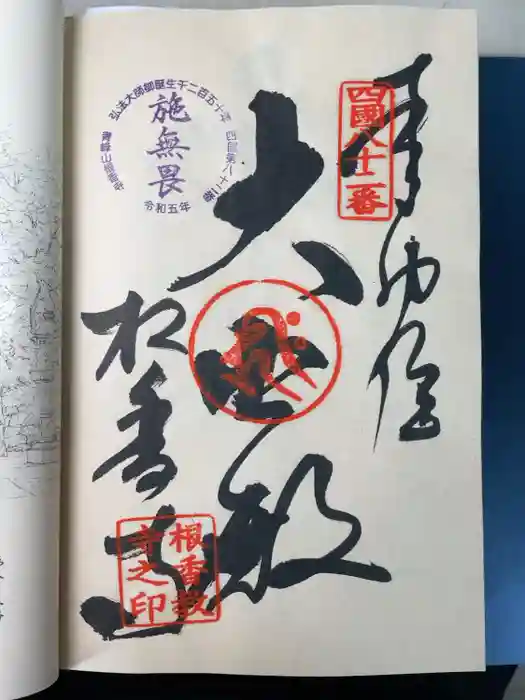 奉納経
四國八十二番
大悲殿
根香寺
根香教
寺之印
弘法大師御誕生千二百五十年
四国第八十二番
青峰山根香寺
施無畏
令和五年